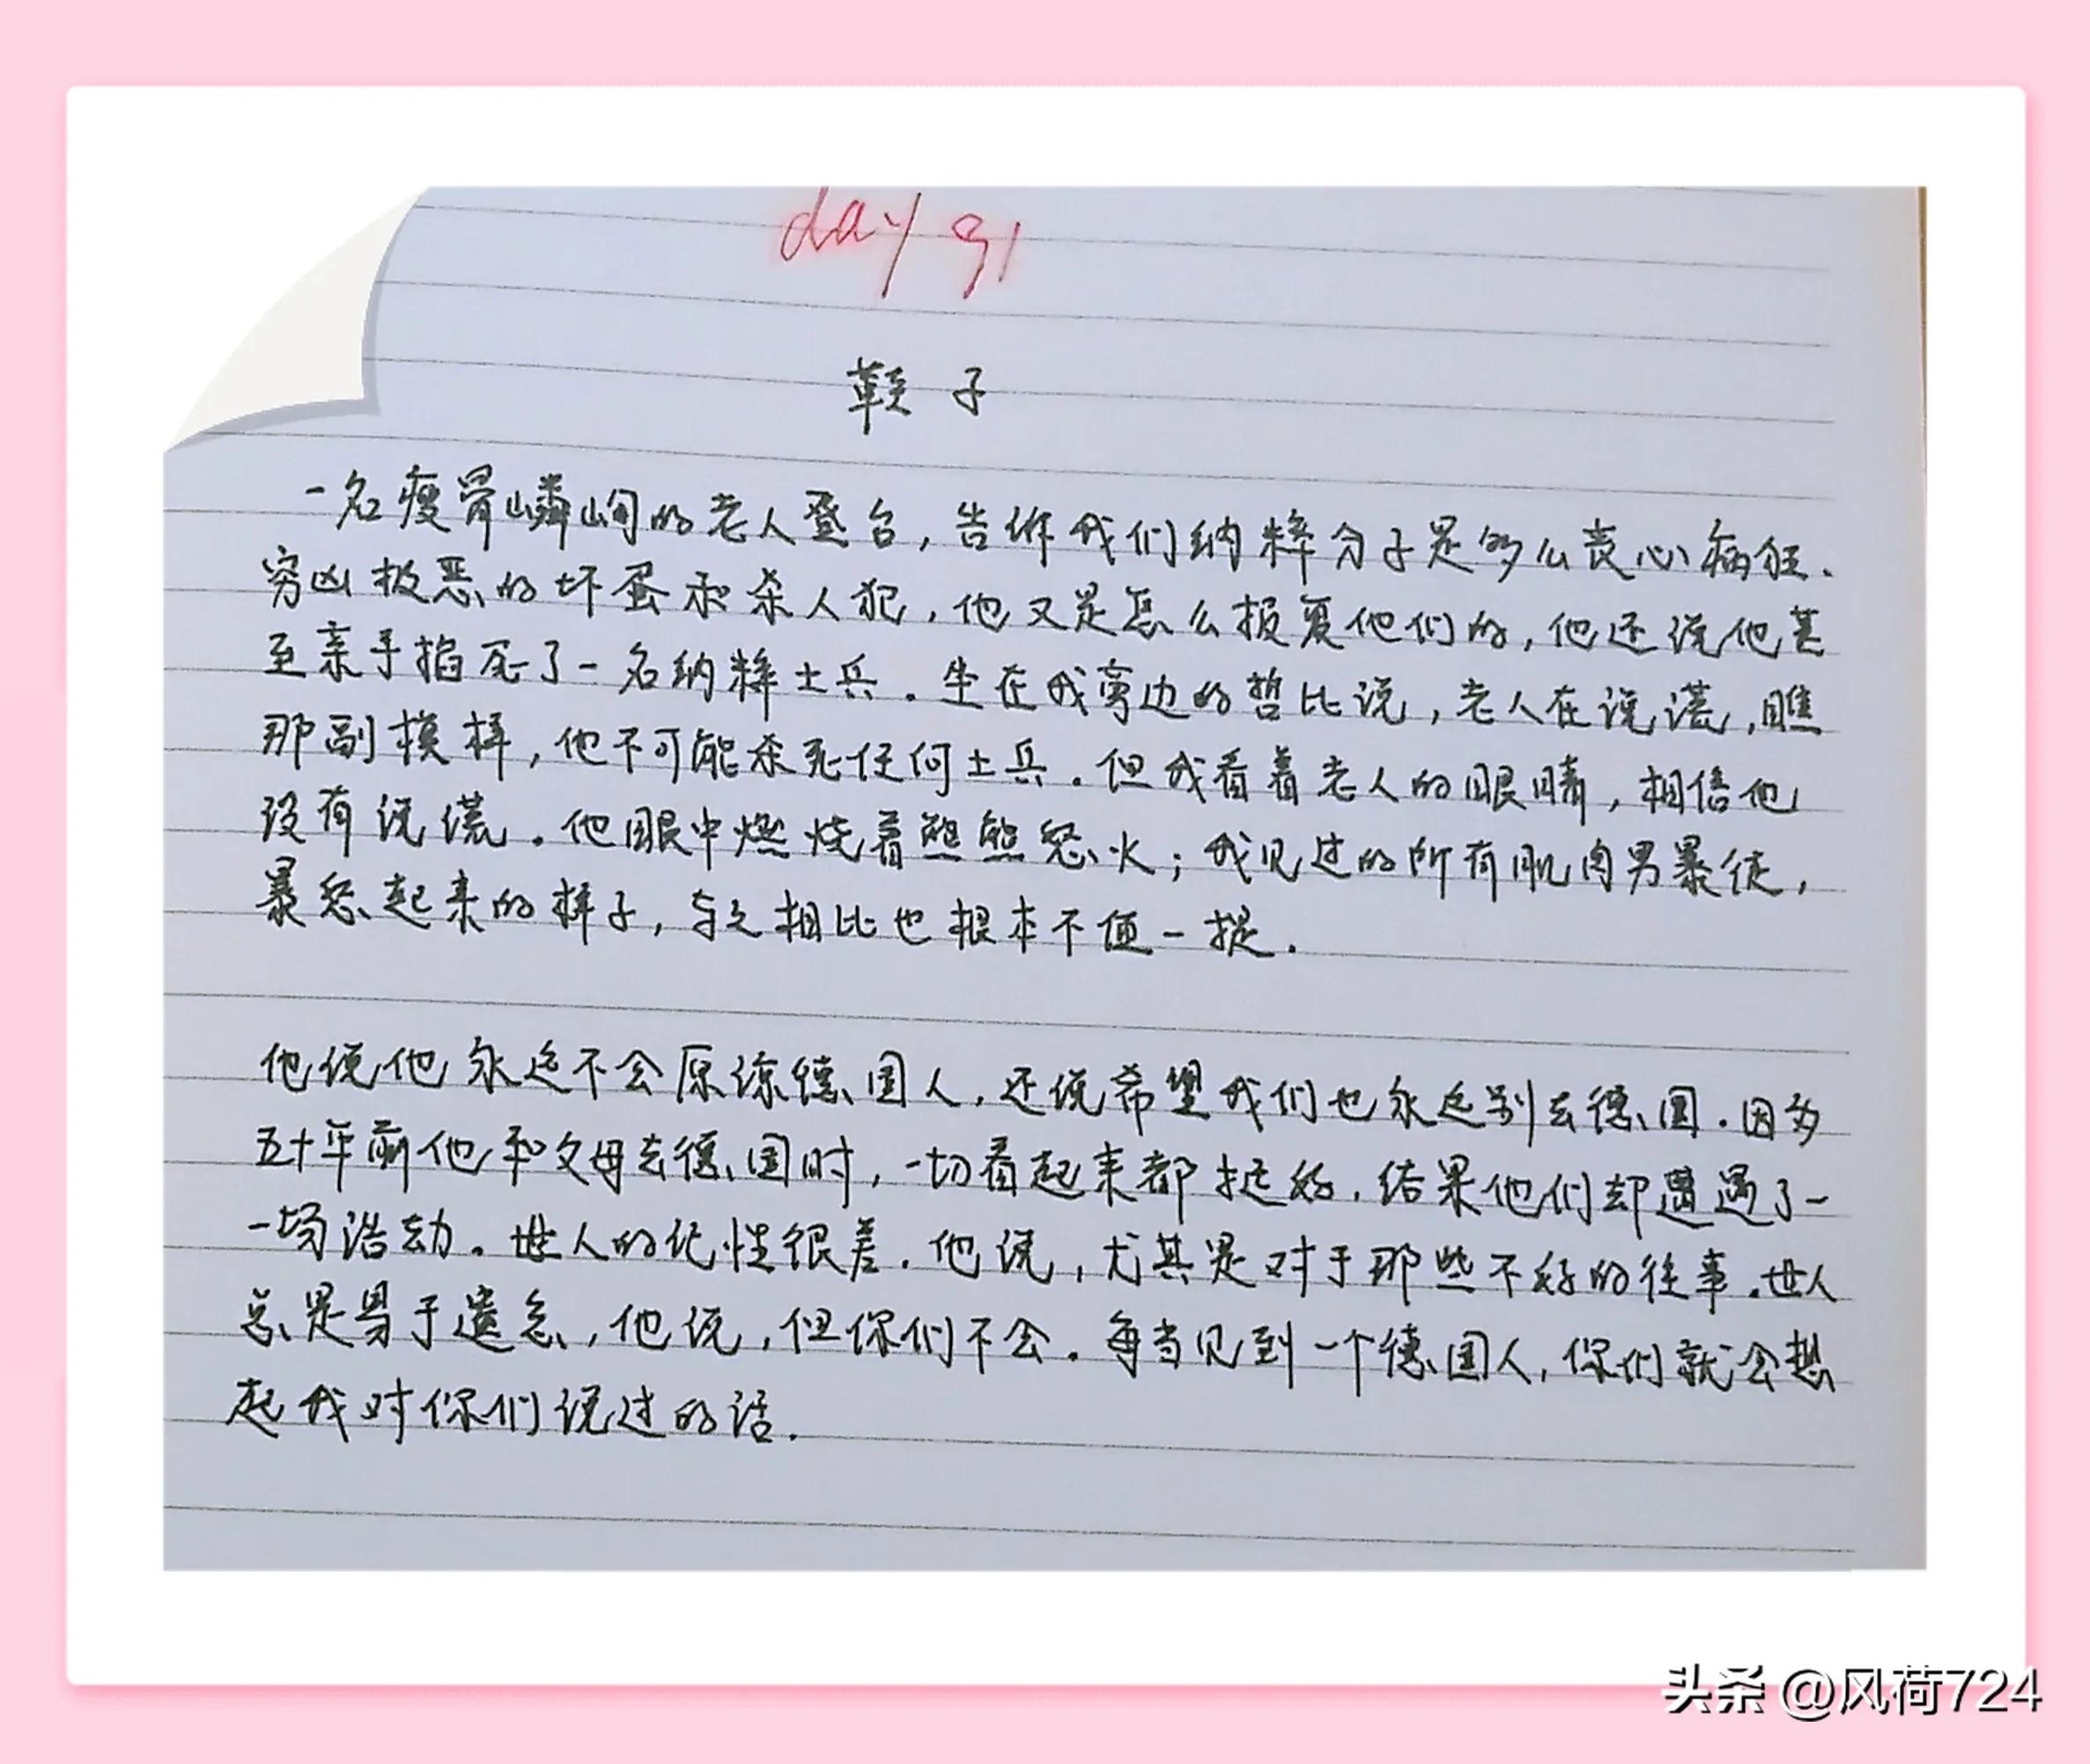 day 91
鞋子
一名瘦骨嶙峋的老人登台，告诉我们纳粹分子是多么丧心病狂、
穷凶极恶的坏蛋和杀人犯，他又是怎么报复他们的，他还说他甚
至亲手掐死了一名纳粹士兵。坐在我旁边的哲比说，老人在说谎，瞧
那副模样，他不可能杀死任何士兵。但我看着老人的眼睛，相信他
没有说谎。他眼中燃烧着熊熊怒火；我见过的所有肌肉男暴徒，
暴怒起来的样子，与之相比也根本不值一提。
他说他永远不会原谅德国人，还说希望我们也永远别去德国。因为
五十年前他和父母去德国时，一切看起来都挺好，结果他们却遭遇了一
一场浩劫。世人的记性很差，他说，尤其是对于那些不好的往事。世人
总是易于遗忘，他说，但你们不会。每当见到一个德国人，你们就会想
起我对你们说过的话。
头条 @风荷724